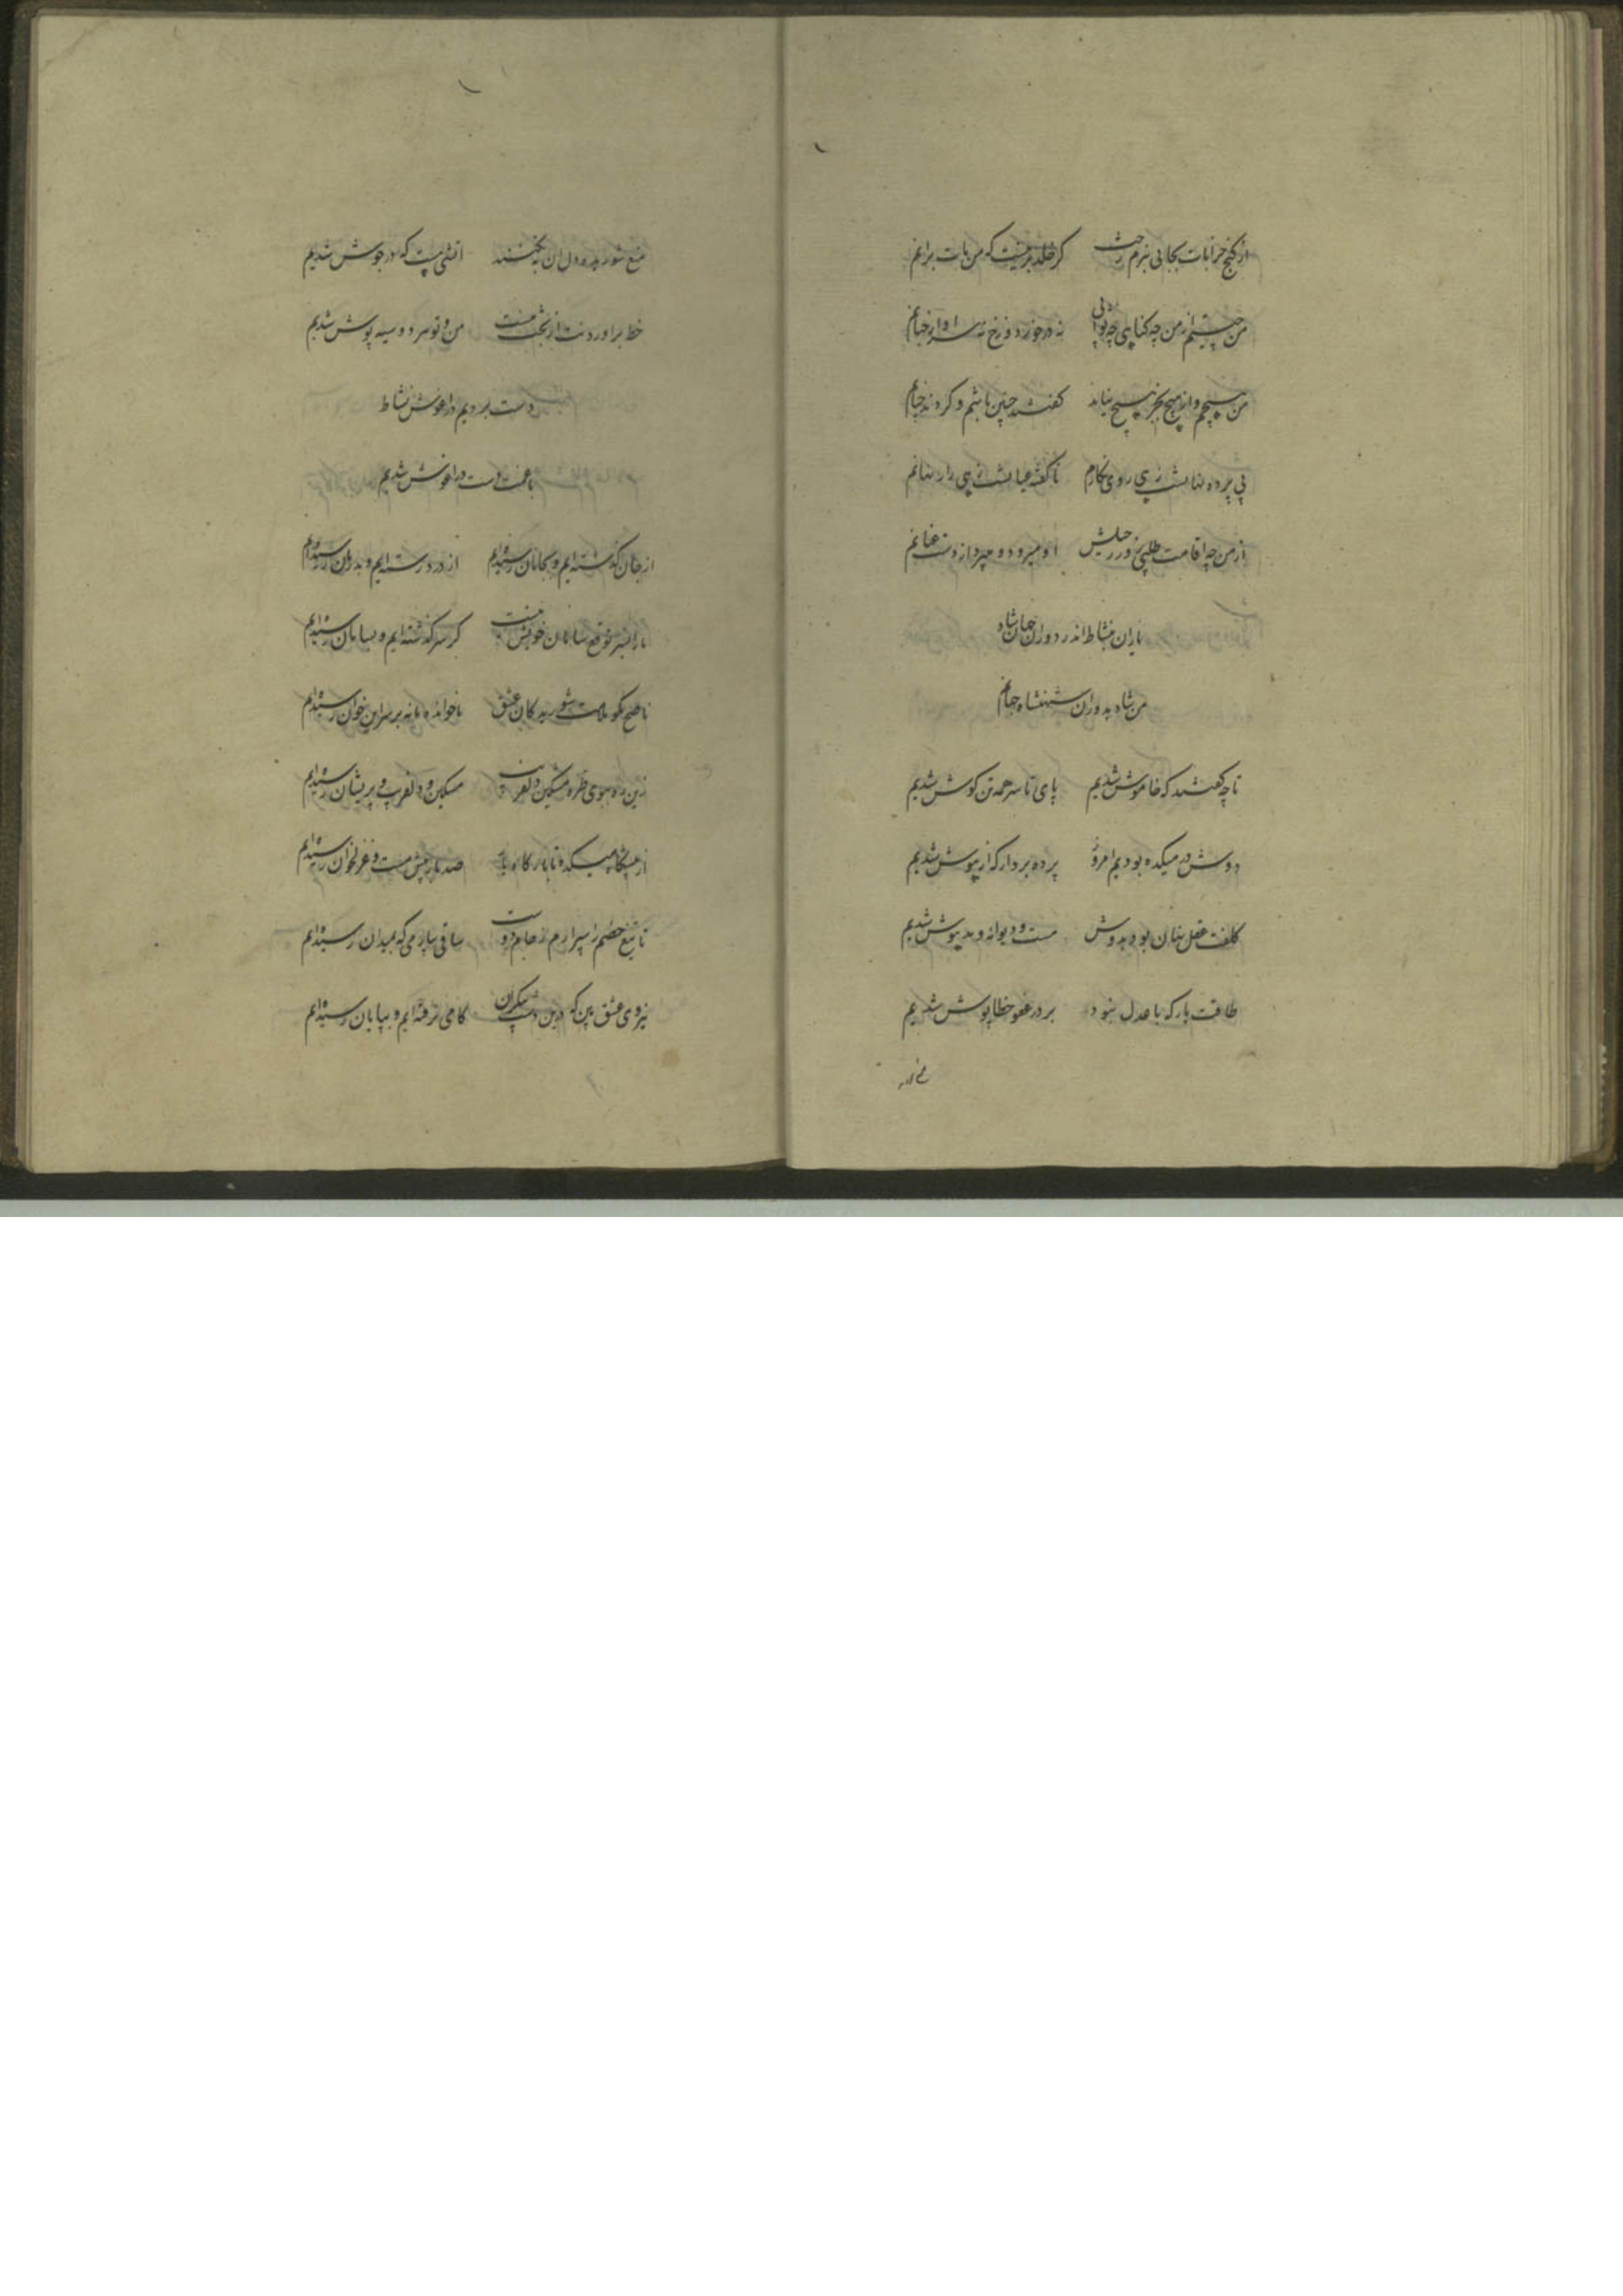 از کنج خرابات بجائی نبرم رخت کر خلد برینست که من بات برانم
من چیستم از من چه کنایی چه ثوابی نه در خور دوزخ نه سزاوار جنانم
من هیچم و از هیچ بجز هیچ نیاید گفتند چنین باشم و کردند چنانم
بی پرده نهانست ز پی روی نکارم ناکفته عیانست ز پی راز نهانم
از من چه اقامت طلبی روز رحیلش او میرود و میبرد از دست عنانم
یاران بنشاط اندر دوران جهان شاه
من شاد بدوران شهنشاه جهانم
تا چه کفتند که خاموش شدیم پای تا سر همه تن کوش شدیم
دوش در میکده بودیم امروز پرده بردار که از هوش شدیم
کلفت عقل نهان بود بدوش مست و دیوانه و مدهوش شدیم
طاقت بار که با عدل نبود بر در عفو خطاپوش شدیم
منع شوریده دلان نکنند اتشی هست که در جوش شدیم
خط براوردنت از بخت منست من و تو هر دو سیه پوش شدیم
دست بردیم در اغوش نشاط
با غمت دست در اغوش شدیم
از جان کذشته ایم و بجانان رسیده ایم از درد رسته ایم و بدرمان رسیده ایم
ما را بسر توقع سامان خویش نیست کز سر کذشته ایم و بسامان رسیده ایم
ناصح مکو ملامت شوریدکان عشق ناخوانده ما نه بر سر این خوان رسیده ایم
زین ره بسوی طره مشکین دلفریب مسکین و دلفریب و پریشان رسیده ایم
از پیشکاه میکده تا بارکاه صد بار بیش مست و غزلخوان رسیده ایم
تا تیغ خصم را سپر ارم ز جام دوست ساقی بیار می که بمیدان رسیده ایم
نیروی عشق بین که درین دشت بیکران کامی نرفته ایم و بپایان رسیده ایم